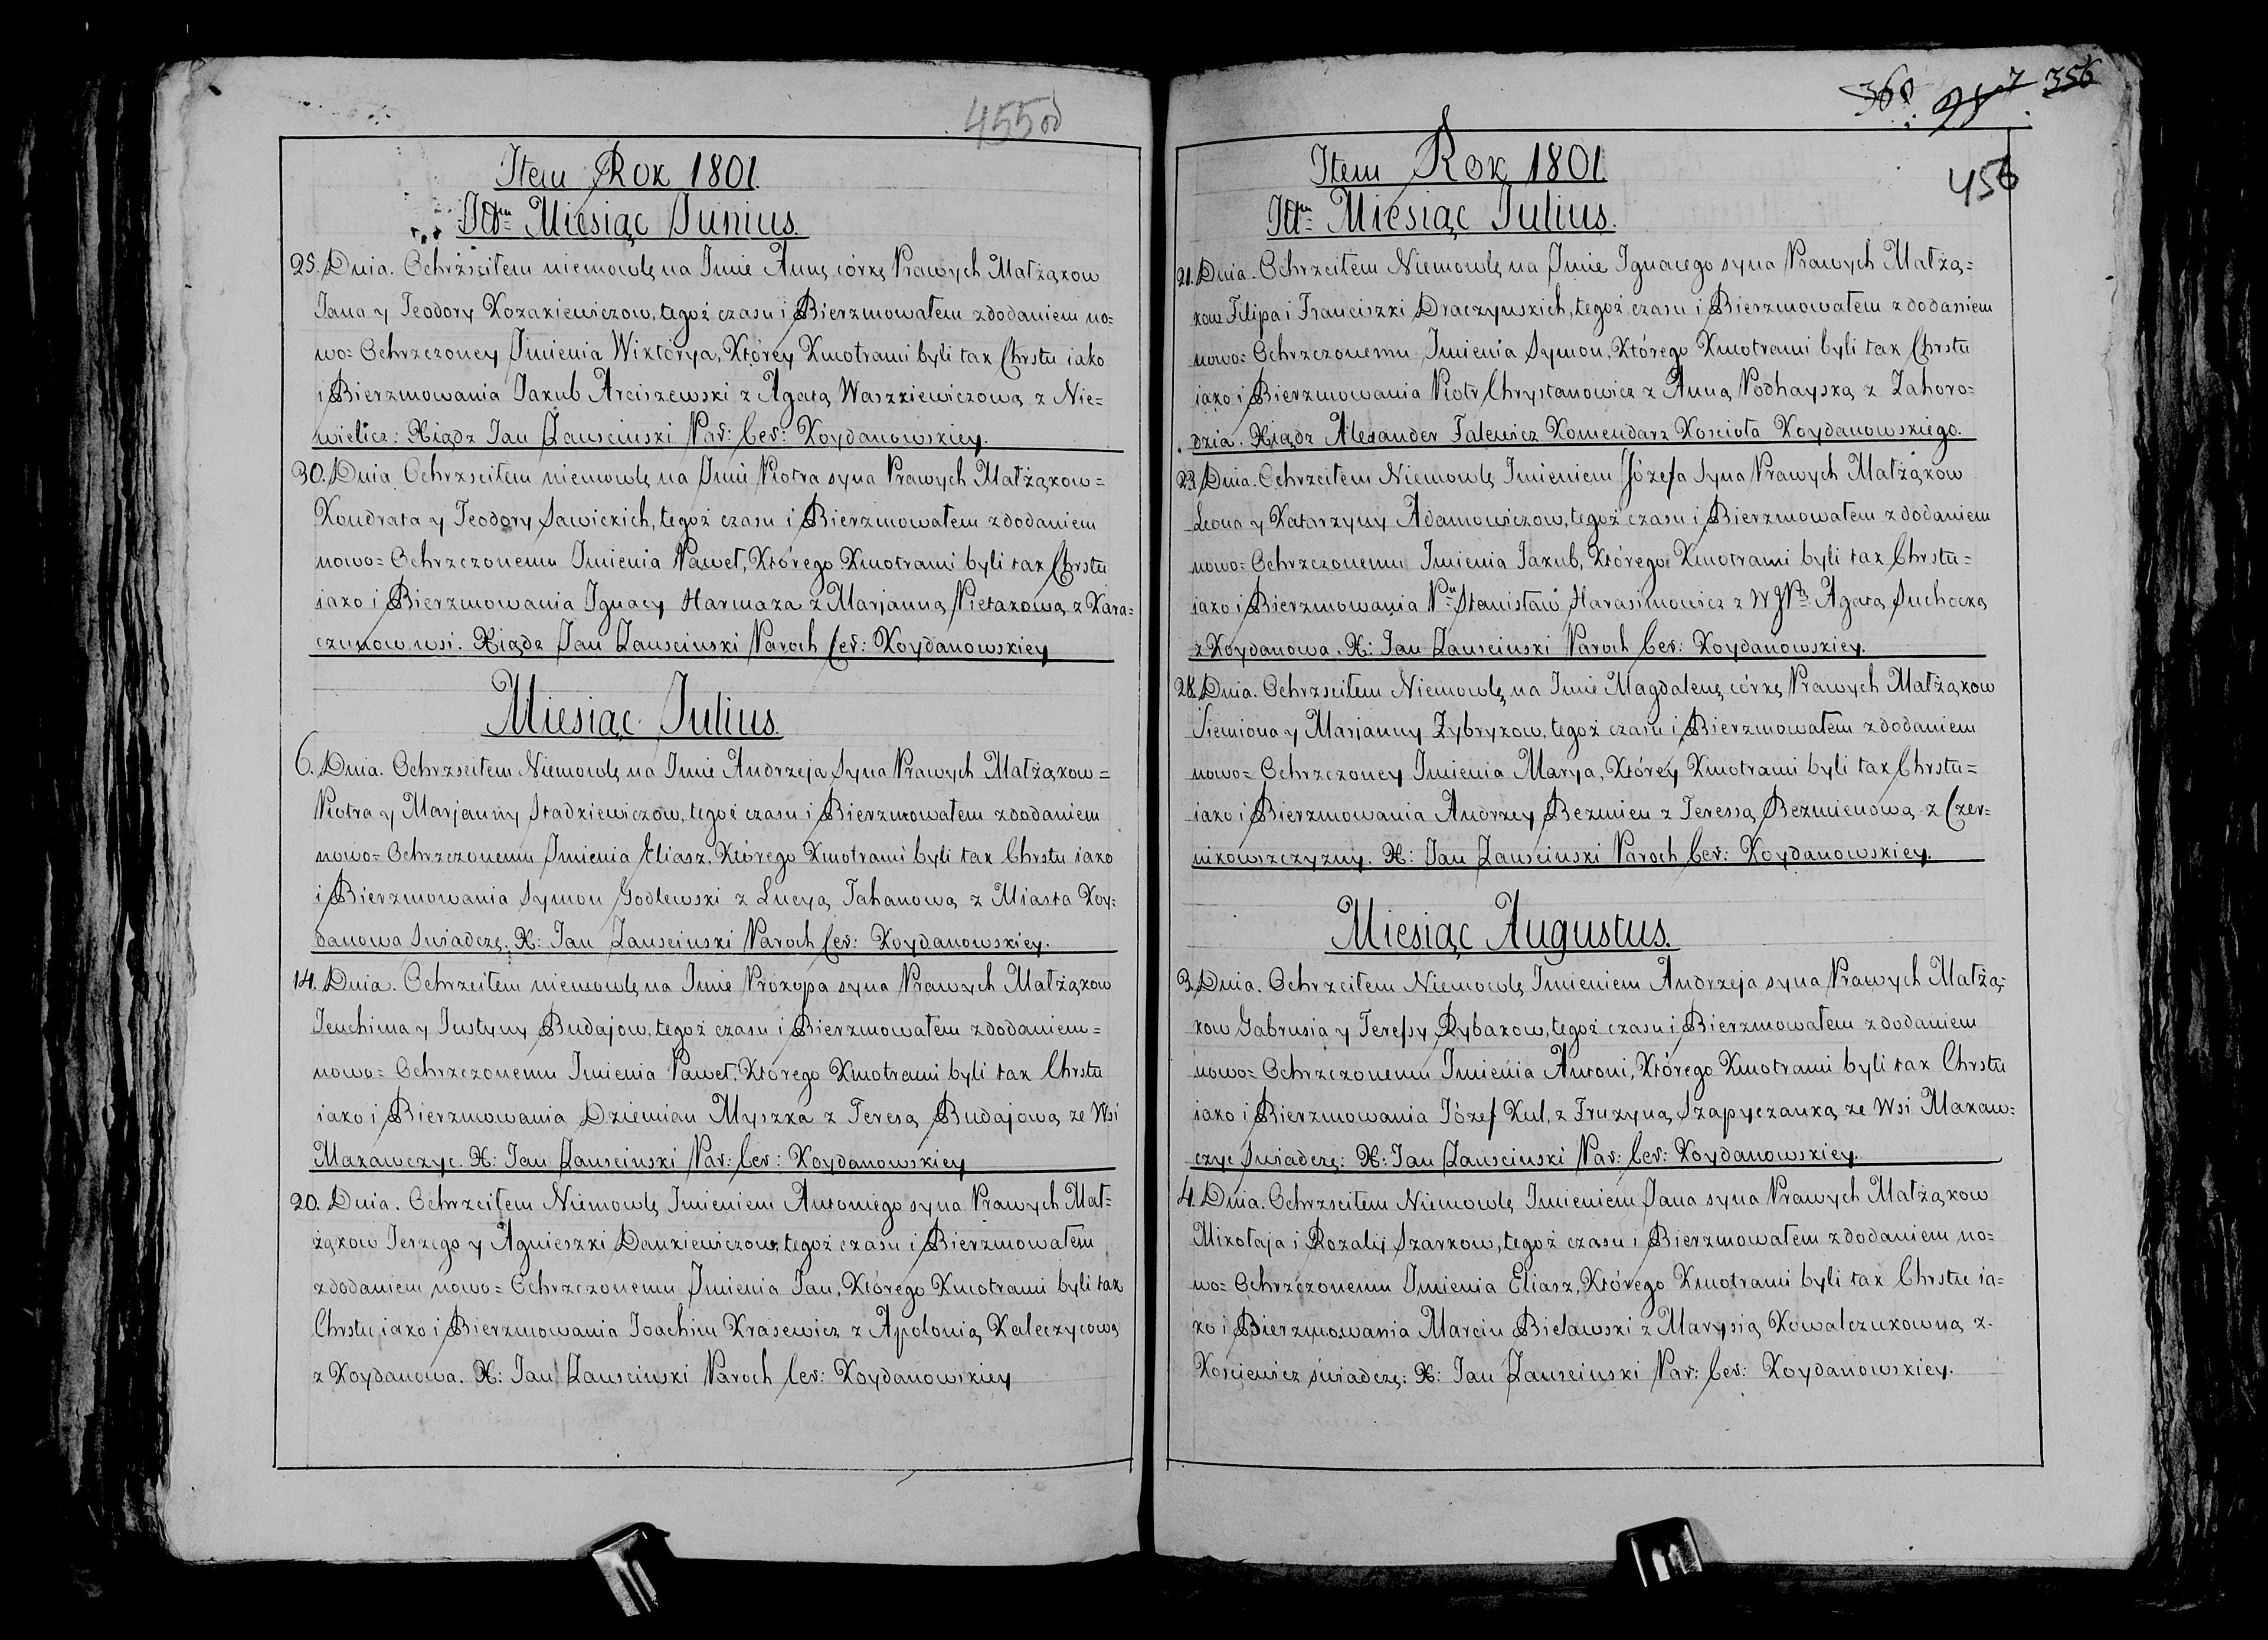 455 od
Item Rok 1801.
Itm Miesiąc Junius.
25. Dnia. Ochrzsciłem niemowlę na Jmie Annę córkę Prawych Małżąkow
Jana y Teodory Kozakiewiczow, tegoż czasu i Bierzmowałem z dodaniem no=
wo= Ochrzczoney Jmienia Wiktorya, Którey Kmotrami byli tak Chrstu iako
i Bierzmowania Jakub Arciszewski z Agatą Waszkiewiczową z Nie=
wielicz: Xiądz Jan Łausciuski Par: Cer: Koydanowskiey.
30. Dnia Ochrzsciłem niemowlę na Jmie Piotra syna Prawych Małżąkow=
Kondrata y Teodory Sawickich, tegoż czasu i Bierzmowałem z dodaniem
nowo= Ochrzczonemu Jmienia Paweł, Którego Kmotrami byli tak Chrstu
iako i Bierzmowania Jgnacy Harmaza z Marjanną Pietakową z Kara=
czunow wsi. Xiądz Jan Łausciuski Paroch Cer: Koydanowskiey
Miesiąc Julius.
6. Dnia. Ochrzsciłem Niemowlę na Jmie Andrzeja Syna Prawych Małżąkow=
Piotra y Marjanny Stadziewiczow, tegoż czasu i Bierzmowałem z dodaniem
nowo= Ochrzczonemu Jmienia Eliasz, Którego Kmotrami byli tak Chrstu iako
i Bierzmowania Symon Godlewski z Lucyą Tahanową z Miasta Koy=
danowa Swiadczę: X: Jan Łausciuski Paroch Cer: Koydanowskiey.
14. Dnia. Ochrzciłem niemowlę na Jmie Prokopa syna Prawych Małżąkow
Jeuchima y Justyny Budajow, tegoż czasu i Bierzmowałem z dodaniem=
nowo= Ochrzczonemu Jmienia Paweł, Którego Kmotrami byli tak Chrstu
iako i Bierzmowania Dziemian Myszka z Teresą Budajową ze Wsi
Makawczyc. X: Jan Łausciuski Par: Cer: Koydanowskiey
20. Dnia. Ochrzciłem Niemowlę Jmieniem Antoniego syna Prawych Mał=
żąkow Jerzego y Agnieszki Dankiewiczow, tegoż czasu i Bierzmowałem
z dodaniem nowo= Ochrzczonemu Jmienia Jan, Którego Kmotrami byli tak
Chrstu iako i Bierzmowania Joachim Krasewicz z Apolonią Kaleczycową
z Koydanowa. X: Jan Łausciuski Paroch Cer: Koydanowskiey
368 356
456
Item Rok 1801.
Itm Miesiąc Julius.
21. Dnia. Ochrzciłem Niemowlę na Jmie Jgnacego syna Prawych Małżą=
kow Filipa i Franciszki Draczynskich, tegoż czasu i Bierzmowałem z dodaniem
nowo= Ochrzczonemu Jmienia Symon, Którego Kmotrami byli tak Chrstu
iako i Bierzmowania Piotr Chrystanowicz z Anną Podhayską z Zahoro=
dzia. Xiądz Alexander Falewicz Komendarz Koscioła Koydanowskiego.
23. Dnia. Ochrzciłem Niemowlę Jmieniem Józefa Syna Prawych Małżąkow
Leona y Katarzyny Adamowiczow, tegoż czasu i Bierzmowałem z dodaniem
nowo= Ochrzczonemu Jmienia Jakub, Którego Kmotrami byli tak Chrstu=
iako i Bierzmowania Pn Stanisław Harasimowicz z WJP Agatą Suchocką
z Koydanowa. X: Jan Łausciuski Paroch Cer: Koydanowskiey.
28. Dnia. Ochrzsciłem Niemowlę na Jmie Magdalenę córkę Prawych Małżąkow
Siemiona y Marjanny Zybrykow, tegoż czasu i Bierzmowałem z dodaniem
nowo= Ochrzczoney Jmienia Marya, Którey Kmotrami byli tak Chrstu=
iako i Bierzmowania Andrzey Bezmien z Teressą Bezmienową z Czer=
nikowszczyzny. X: Jan Łausciuski Paroch Cer: Koydanowskiey.
Miesiąc Augustus.
3. Dnia. Ochrzciłem Niemowlę Jmieniem Andrzeja syna Prawych Małżą=
kow Gabrusia y Teressy Rybakow, tegoż czasu i Bierzmowałem z dodaniem
nowo= Ochrzczonemu Jmienia Antoni, Którego Kmotrami byli tak Chrstu
iako i Bierzmowania Józef Kul, z Fruzyną Szapyczanką ze Wsi Makaw=
czyc Swiadczę: X: Jan Łausciuski Par: Cer: Koydanowskiey.
4. Dnia. Ochrzsciłem Niemowlę Jmieniem Jana syna Prawych Małżąkow
Mikołaja i Rozalij Szarkow, tegoż czasu i Bierzmowałem z dodaniem no=
wo= Ochrzczonemu Jmienia Eliasz, Którego Kmotrami byli tak Chrstu ia=
ko i Bierzmowania Marcin Bielawski z Marysią Kowalczukowną z
Kosciewicz swiadczę: X: Jan Łausciuski Par: Cer: Koydanowskiey.